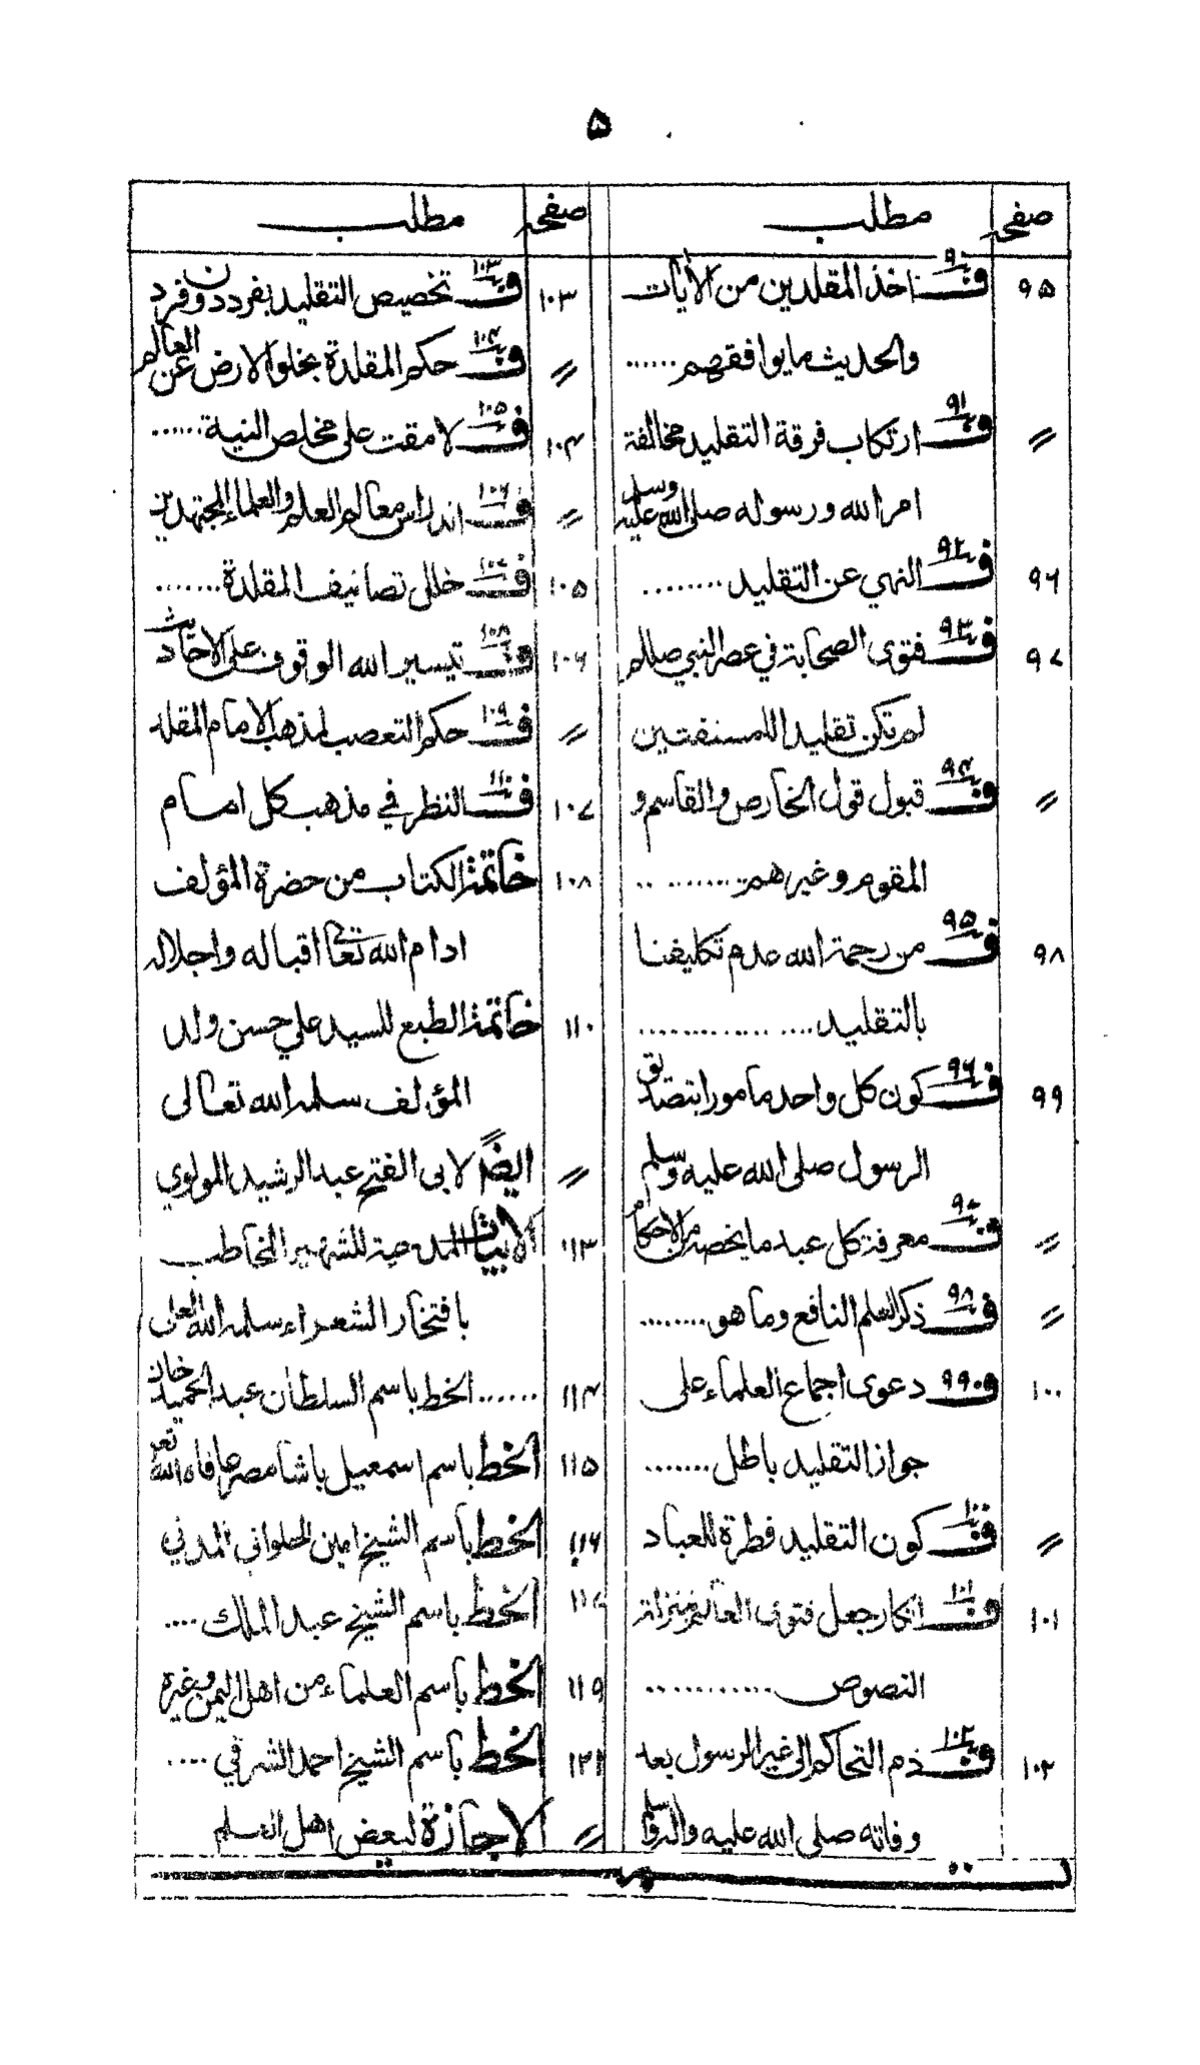 ۵
صفحہ مطلب
۹۵ ف۹۰ اخذ المقلدين من الآيات
والحديث ما يوافقهم ......
〃 ف۹۱ ارتكاب فرقة التقليد مخالفة
امر الله ورسوله صلى الله عليه وسلم
۹۶ ف۹۲ النهي عن التقليد ........
۹۷ ف۹۳ فتوى الصحابة في عصر النبي صللم
لم تكن تقليدا للمستفتين
〃 ف۹۴ قبول قول الخارص والقاسم و
المقوم وغيرهم ..........
۹۸ ف۹۵ من رحمة الله عدم تكليفنا
بالتقليد .............
۹۹ ف۹۶ كون كل واحد مامورا بتصديق
الرسول صلى الله عليه وسلم
〃 ف۹۷ معرفة كل عبد ما يخصه من الاحكام
〃 ف۹۸ ذكر العلم النافع وما هو ........
۱۰۰ ف۹۹ دعوى اجماع العلماء على
جواز التقليد باطل .......
〃 ف۱۰۰ كون التقليد فطرة للعباد
۱۰۱ ف۱۰۱ انكار جعل فتوى العالم بمنزلة
النصوص ............
۱۰۲ ف۱۰۲ ذم التحاكم الى غير الرسول بعد
وفاته صلى الله عليه وآله وسلم
صفحہ مطلب
۱۰۳ ف۱۰۳ تخصيص التقليد بفرد دون فرد
〃 ف۱۰۴ حكم المقلدة بخلو الارض عن العالم
۱۰۴ ف۱۰۵ لا مقت على مخلص النية ......
〃 ف۱۰۶ اندراس معالم العلم والعلماء المجتهدين
۱۰۵ ف۱۰۷ خلل تصانيف المقلدة .......
۱۰۶ ف۱۰۸ تيسير الله الوقوف على الاحاديث
〃 ف۱۰۹ حكم التعصب لمذهب الامام المقلد
۱۰۷ ف۱۱۰ النظر في مذهب كل امام
۱۰۸ خاتمة الكتاب من حضرة المؤلف
ادام الله تعالى اقباله واجلاله
۱۱۰ خاتمة الطبع للسيد علي حسن ولد
المؤلف سلمه الله تعالى
〃 ايضًا لابي الفتح عبد الرشيد المولوي
۱۱۳ الابيات المدحية للشهير المخاطب
بافتخار الشعراء سلمه الله العلي
۱۱۴ ...... الخط باسم السلطان عبد الحميد خان
۱۱۵ الخط باسم اسمعيل باشا مصر عافاه الله تعر
۱۱۶ الخط باسم الشيخ امين الحلواني المدني
۱۱۷ الخط باسم الشيخ عبد الملك ....
۱۱۹ الخط باسم العلماء من اهل اليمن وغيره
۱۲۱ الخط باسم الشيخ احمد الشرقي ....
〃 الاجازة لبعض اهل العلم